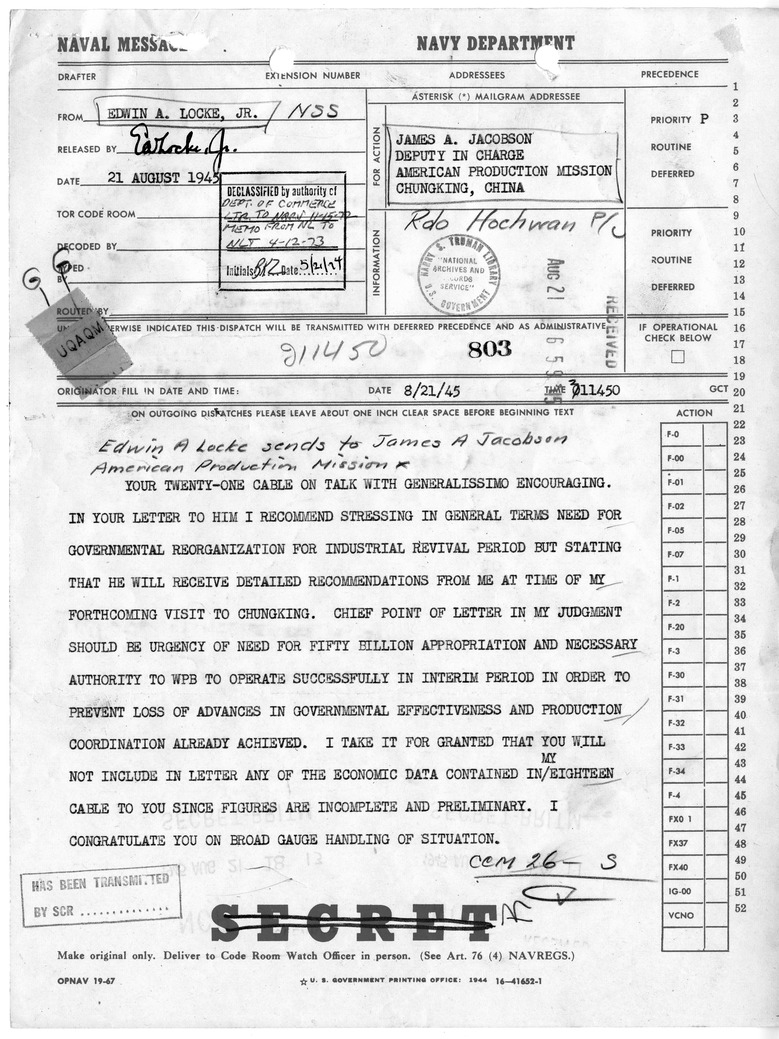 NAVAL MESSAGE NAVY DEPARTMENT
DRAFTER EXTENSION NUMBER ADDRESSEES PRECEDENCE
FROM EDWIN A. LOCKE, JR. / NSS
RELEASED BY EALocke, Jr.
DATE 21 AUGUST 1945
TOR CODE ROOM
DECODED BY
BY
ROUTED BY
DECLASSIFIED by authority of
DEPT. OF COMMERCE
LTR TO NARS 11-15-72
MEMO FROM NL TO
NLT 4-12-73
Initials Date: 5/21/74
ASTERISK (*) MAILGRAM ADDRESSEE
FOR ACTION
JAMES A. JACOBSON
DEPUTY IN CHARGE
AMERICAN PRODUCTION MISSION
CHUNGKING, CHINA
PRIORITY P
ROUTINE
DEFERRED
INFORMATION
Rdo Hochwan P/J
HARRY S. TRUMAN LIBRARY
"NATIONAL
ARCHIVES AND
RECORDS
SERVICE"
U.S. GOVERNMENT
AUG 21
RECEIVED
PRIORITY
ROUTINE
DEFERRED
UQAQM
UNLESS OTHERWISE INDICATED THIS DISPATCH WILL BE TRANSMITTED WITH DEFERRED PRECEDENCE AND AS ADMINISTRATIVE
IF OPERATIONAL
CHECK BELOW
211450 803
ORIGINATOR FILL IN DATE AND TIME: DATE 8/21/45 TIME 011450 GCT
ON OUTGOING DISPATCHES PLEASE LEAVE ABOUT ONE INCH CLEAR SPACE BEFORE BEGINNING TEXT
ACTION
Edwin A Locke sends to James A Jacobson
American Production Mission x
YOUR TWENTY-ONE CABLE ON TALK WITH GENERALISSIMO ENCOURAGING.
IN YOUR LETTER TO HIM I RECOMMEND STRESSING IN GENERAL TERMS NEED FOR
GOVERNMENTAL REORGANIZATION FOR INDUSTRIAL REVIVAL PERIOD BUT STATING
THAT HE WILL RECEIVE DETAILED RECOMMENDATIONS FROM ME AT TIME OF MY
FORTHCOMING VISIT TO CHUNGKING. CHIEF POINT OF LETTER IN MY JUDGMENT
SHOULD BE URGENCY OF NEED FOR FIFTY BILLION APPROPRIATION AND NECESSARY
AUTHORITY TO WPB TO OPERATE SUCCESSFULLY IN INTERIM PERIOD IN ORDER TO
PREVENT LOSS OF ADVANCES IN GOVERNMENTAL EFFECTIVENESS AND PRODUCTION
COORDINATION ALREADY ACHIEVED. I TAKE IT FOR GRANTED THAT YOU WILL
MY
NOT INCLUDE IN LETTER ANY OF THE ECONOMIC DATA CONTAINED IN/EIGHTEEN
CABLE TO YOU SINCE FIGURES ARE INCOMPLETE AND PRELIMINARY. I
CONGRATULATE YOU ON BROAD GAUGE HANDLING OF SITUATION.
CCM 26 - S
HAS BEEN TRANSMITTED
BY SCR .............
SECRET
Make original only. Deliver to Code Room Watch Officer in person. (See Art. 76 (4) NAVREGS.)
OPNAV 19-67 ☆ U. S. GOVERNMENT PRINTING OFFICE: 1944 16-41652-1
F-0
F-00
F-01
F-02
F-05
F-07
F-1
F-2
F-20
F-3
F-30
F-31
F-32
F-33
F-34
F-4
FX0 1
FX37
FX40
IG-00
VCNO
1
2
3
4
5
6
7
8
9
10
11
12
13
14
15
16
17
18
19
20
21
22
23
24
25
26
27
28
29
30
31
32
33
34
35
36
37
38
39
40
41
42
43
44
45
46
47
48
49
50
51
52